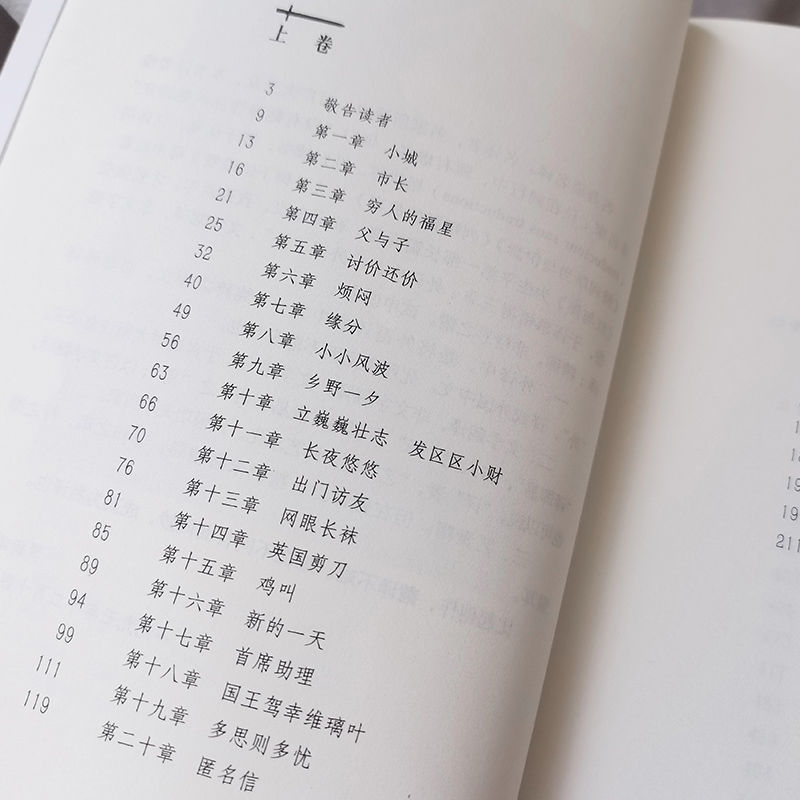 上 卷
3 敬告读者
9 第一章 小城
13 第二章 市长
16 第三章 穷人的福星
21 第四章 父与子
25 第五章 讨价还价
32 第六章 烦闷
40 第七章 缘分
49 第八章 小小风波
56 第九章 乡野一夕
63 第十章 立巍巍壮志 发区区小财
66 第十一章 长夜悠悠
70 第十二章 出门访友
76 第十三章 网眼长袜
81 第十四章 英国剪刀
85 第十五章 鸡叫
89 第十六章 新的一天
94 第十七章 首席助理
99 第十八章 国王驾幸维璃叶
111 第十九章 多思则多忧
119 第二十章 匿名信
211